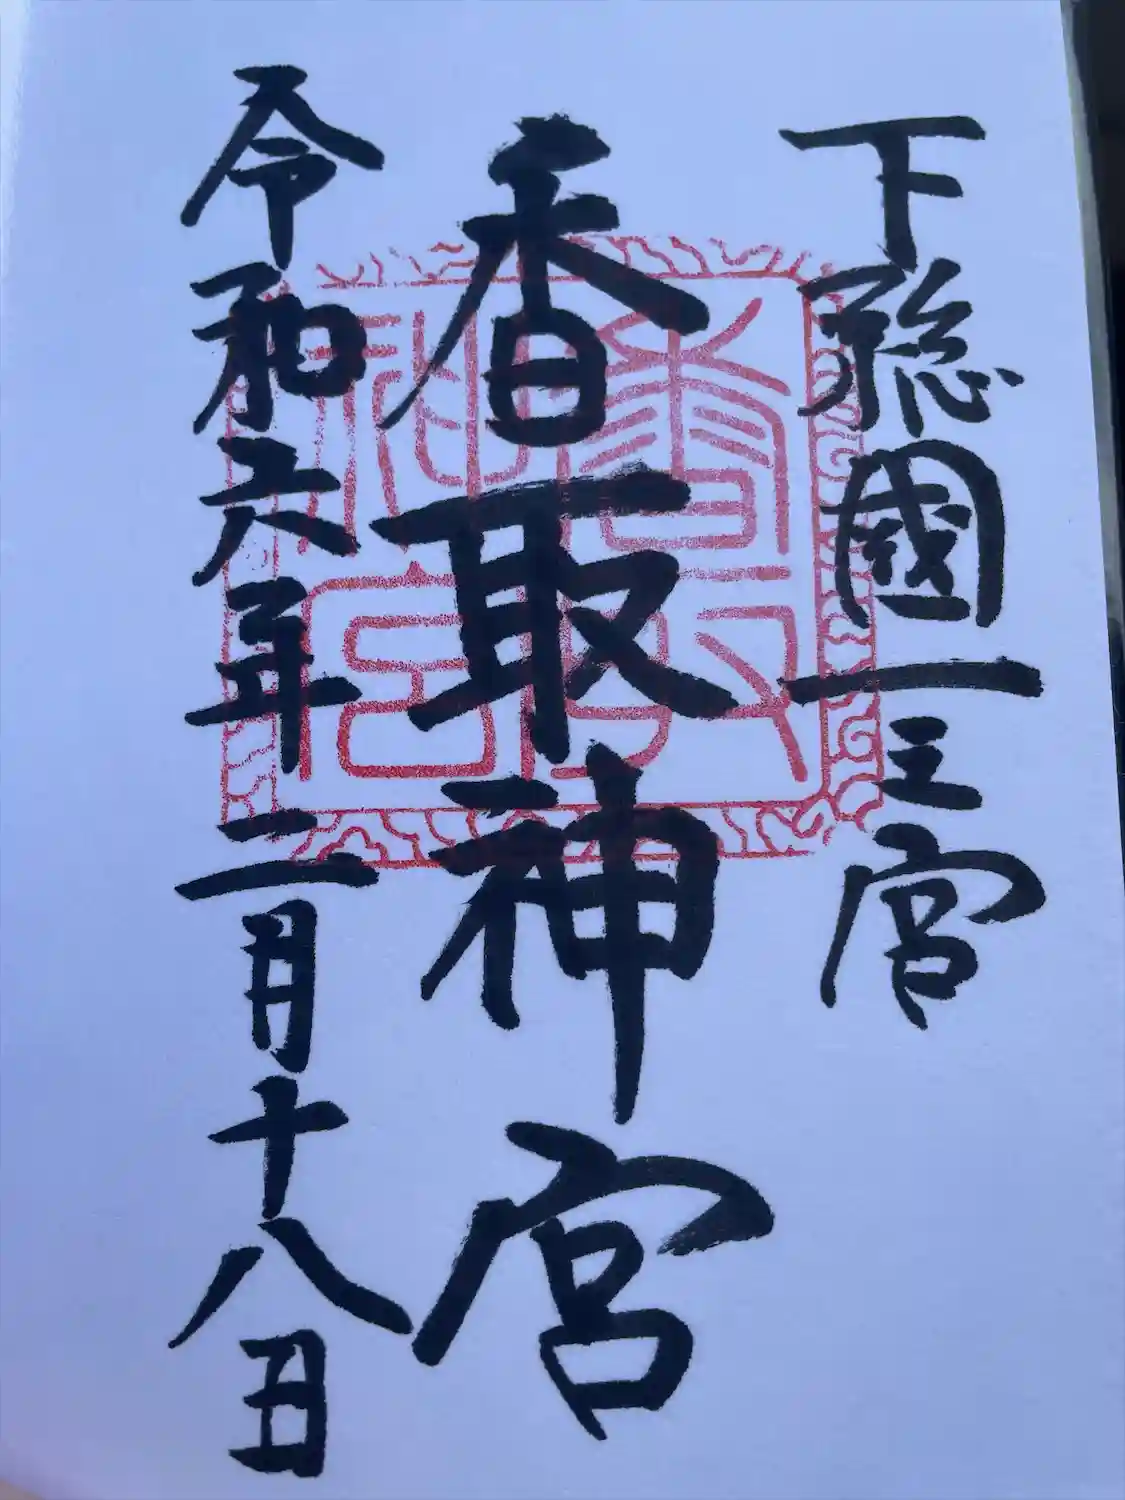 下總國一之宮
香取神宮
令和六年二月十八日
香取神宮